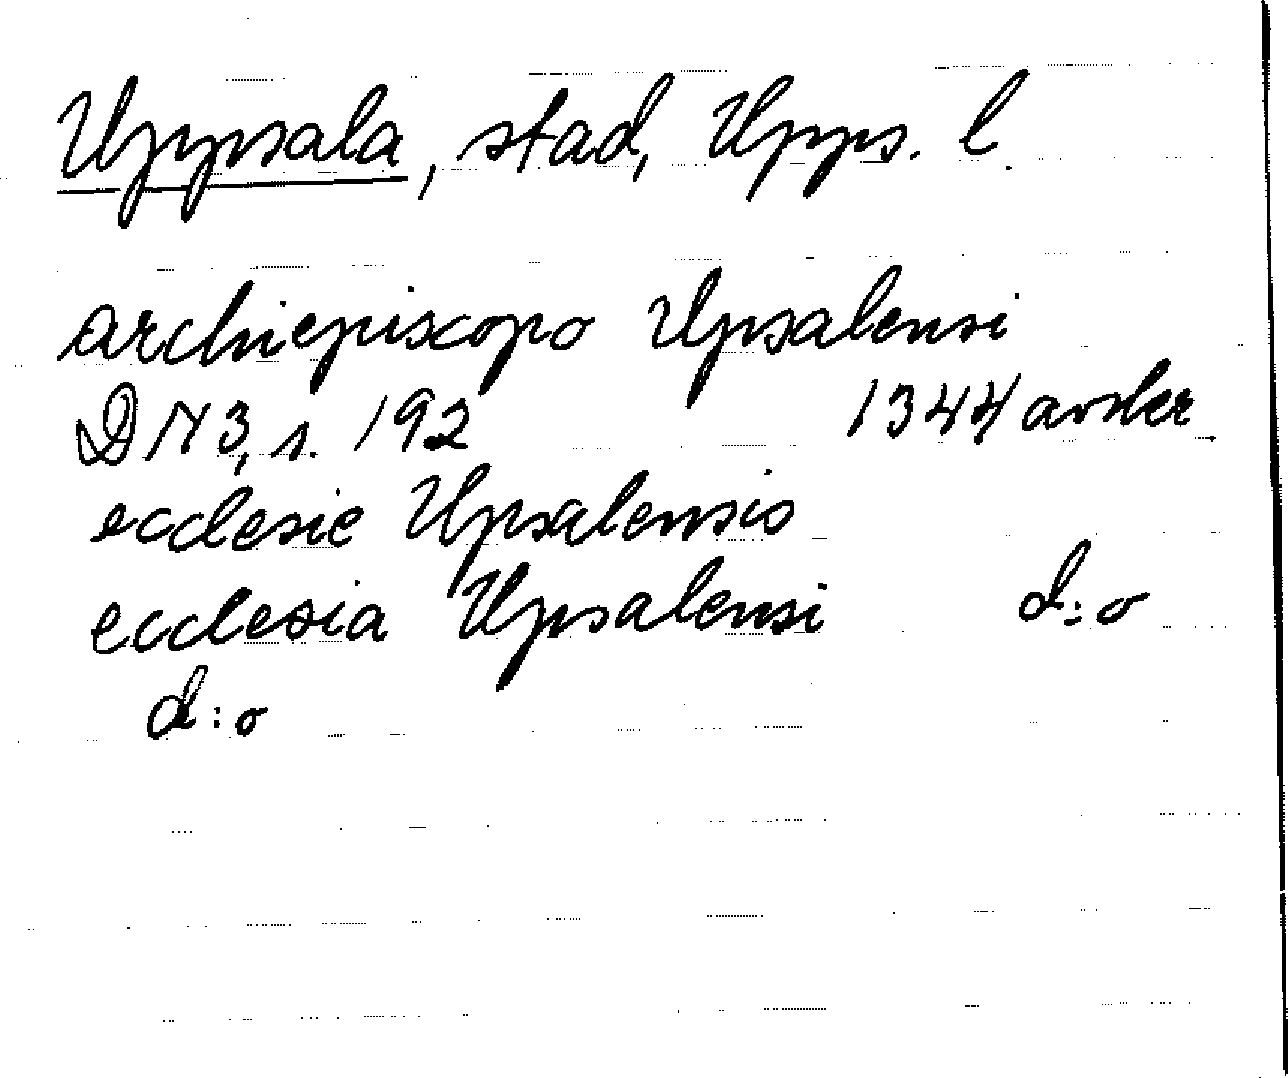 Uppsala, stad, Upps. l.
archiepiscopo Upsalensi
DN 3, s. 192 1344 avskr.
ecclesie Upsalensis
ecclesia Upsalensi d:o
d:o